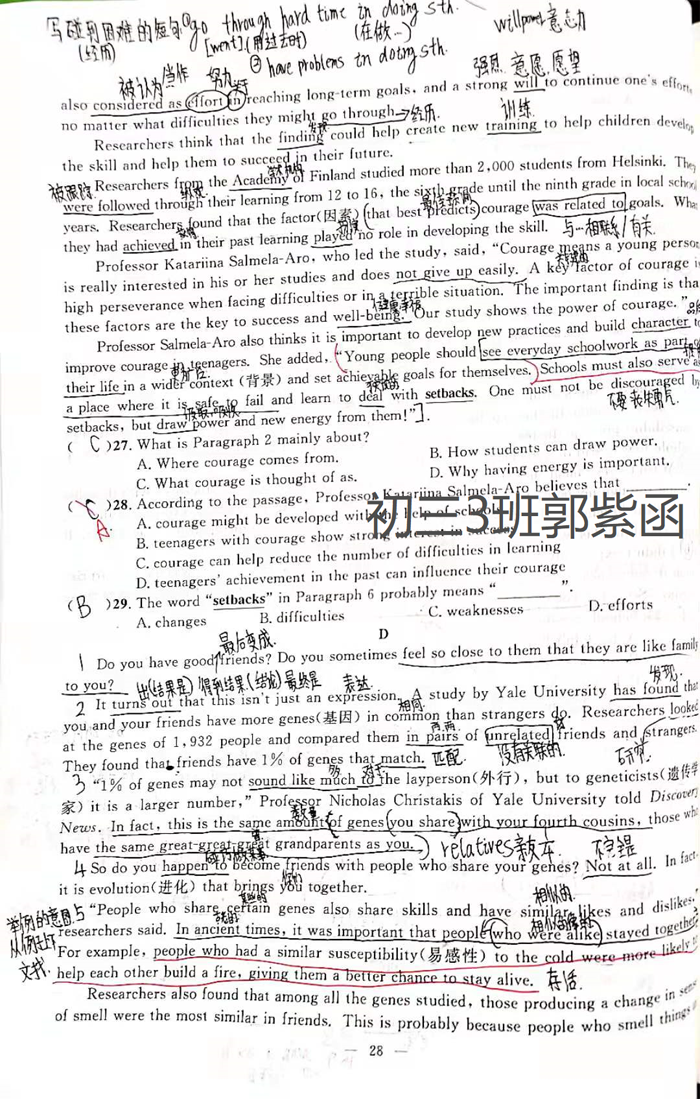 写碰到困难的短句①go through hard time in doing sth.
(经历) [went](用过去时) (在做...) willpower意志力
②have problems in doing sth.
被认为当作 努力 强烈 意愿,愿望
also considered as effort in reaching long-term goals, and a strong will to continue one's effort
no matter what difficulties they might go through. →经历 训练
Researchers think that the finding could help create new training to help children develop
the skill and help them to succeed in their future.
Researchers from the Academy of Finland studied more than 2,000 students from Helsinki. They
被跟踪
were followed through their learning from 12 to 16, the sixth grade until the ninth grade in local school
years. Researchers found that the factor(因素)(that best predicts) courage was related to goals. What
they had achieved in their past learning played no role in developing the skill. 与…相联系/有关
Professor Katariina Salmela-Aro, who led the study, said, "Courage means a young person
is really interested in his or her studies and does not give up easily. A key factor of courage is
high perseverance when facing difficulties or in a terrible situation. The important finding is that
these factors are the key to success and well-being. Our study shows the power of courage."
Professor Salmela-Aro also thinks it is important to develop new practices and build character to
improve courage in teenagers. She added, "Young people should [see everyday schoolwork as part of
their life in a wider context (背景) and set achievable goals for themselves. Schools must also serve as
a place where it is safe to fail and learn to deal with setbacks. One must not be discouraged by
setbacks, but draw power and new energy from them!"].
( C )27. What is Paragraph 2 mainly about?
A. Where courage comes from. B. How students can draw power.
C. What courage is thought of as. D. Why having energy is important.
( C )28. According to the passage, Professor Katariina Salmela-Aro believes that ________.
A
A. courage might be developed with the help of schools
初三3班郭紫函
B. teenagers with courage show strong interest in
C. courage can help reduce the number of difficulties in learning
D. teenagers' achievement in the past can influence their courage
( B )29. The word "setbacks" in Paragraph 6 probably means "________".
A. changes B. difficulties C. weaknesses D. efforts
D
最后变成
1 Do you have good friends? Do you sometimes feel so close to them that they are like family
to you? 出(结果是) 得到结果(结论)最终是 表达 发现
2 It turns out that this isn't just an expression. A study by Yale University has found that
相同
you and your friends have more genes(基因) in common than strangers do. Researchers looked
at the genes of 1,932 people and compared them in pairs of unrelated friends and strangers.
They found that friends have 1% of genes that match. 匹配 没有关联的
3 "1% of genes may not sound like much to the layperson(外行), but to geneticists(遗传学
家) it is a larger number," Professor Nicholas Christakis of Yale University told Discovery
数量
News. In fact, this is the same amount of genes (you share) with your fourth cousins, those who
have the same great-great-great grandparents as you. relatives亲本
4 So do you happen to become friends with people who share your genes? Not at all. In fact,
it is evolution(进化) that brings you together.
举例的意图 相似的
5 "People who share certain genes also share skills and have similar likes and dislikes,"
researchers said. In ancient times, it was important that people (who were alike) stayed together.
从例子上下文找
For example, people who had a similar susceptibility(易感性) to the cold were more likely to
help each other build a fire, giving them a better chance to stay alive. 存活
Researchers also found that among all the genes studied, those producing a change in sense
of smell were the most similar in friends. This is probably because people who smell things
— 28 —